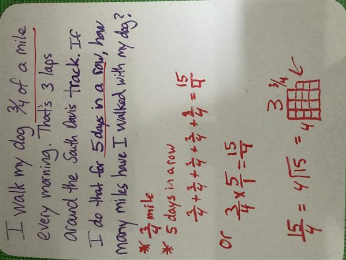 I walk my dog 3/4 of a mile
every morning. That's 3 laps
around the South Davis track. If
I do that for 5 days in a row, how
many miles have I walked with my dog?
* 3/4 mile
* 5 days in a row
3/4 + 3/4 + 3/4 + 3/4 + 3/4 = 15/4
or 3/4 x 5/1 = 15/4
15/4 = 4√15 = 3 3/4
4